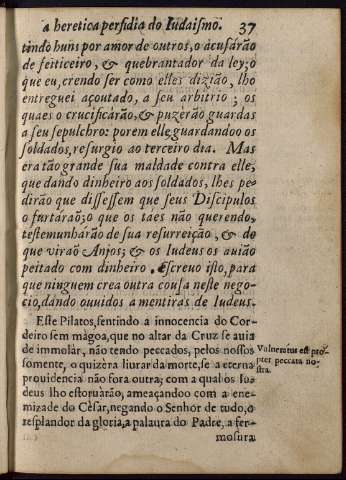 a heretica perfidia do Iudaismo. 37
tindo huns por amor de outros, o acusárão
de feiticeiro, & quebrantador da ley; o
que eu, crendo ser como elles dizião, lho
entreguei açoutado, a seu arbitrio; os
quaes o crucificárão, & puzerão guardas
a seu sepulchro: porem elle, guardandoo os
soldados, resurgio ao terceiro dia. Mas
era tão grande sua maldade contra elle,
que dando dinheiro aos soldados, lhes pe-
dirão que dissessem que seus Discipulos
o furtárão; o que os taes não querendo,
testemunhárão de sua resurreição, & do
que virão Anjos; & os Iudeus os auião
peitado com dinheiro. Escreuo isto, para
que ninguem crea outra cousa neste nego-
cio, dando ouuidos a mentiras de Iudeus.
Este Pilatos, sentindo a innocencia do Cor-
deiro sem màgoa, que no altar da Cruz se auia
de immolàr, não tendo peccados, pelos nossos
somente, o quizèra liurar da morte, se a eterna
prouidencia não fora outra; com a qual os Iu-
deus lho estoruàrão, ameaçandoo com a ene-
mizade do Cèsar, negando o Senhor de tudo, o
resplandor da gloria, a palaura do Padre, a fer-
mosura
Vulneratus est pro-
pter peccata no-
stra.